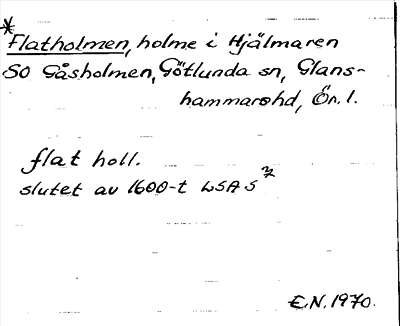 *
Flatholmen, holme i Hjälmaren
SO Gåsholmen, Götlunda sn, Glans-
hammarshd, Ör. l.
flat holl.
slutet av 1600-t LSA S 7
E.N. 1970.